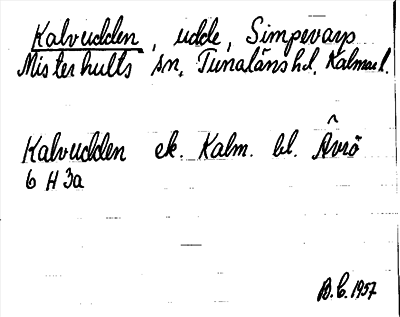 Kalvudden, udde, Simpevarps
Misterhults sn, Tunaläns hd, Kalmar l.
Kalvudden ek. Kalm. bl. Ävrö
6 H 3a
B.C. 1957